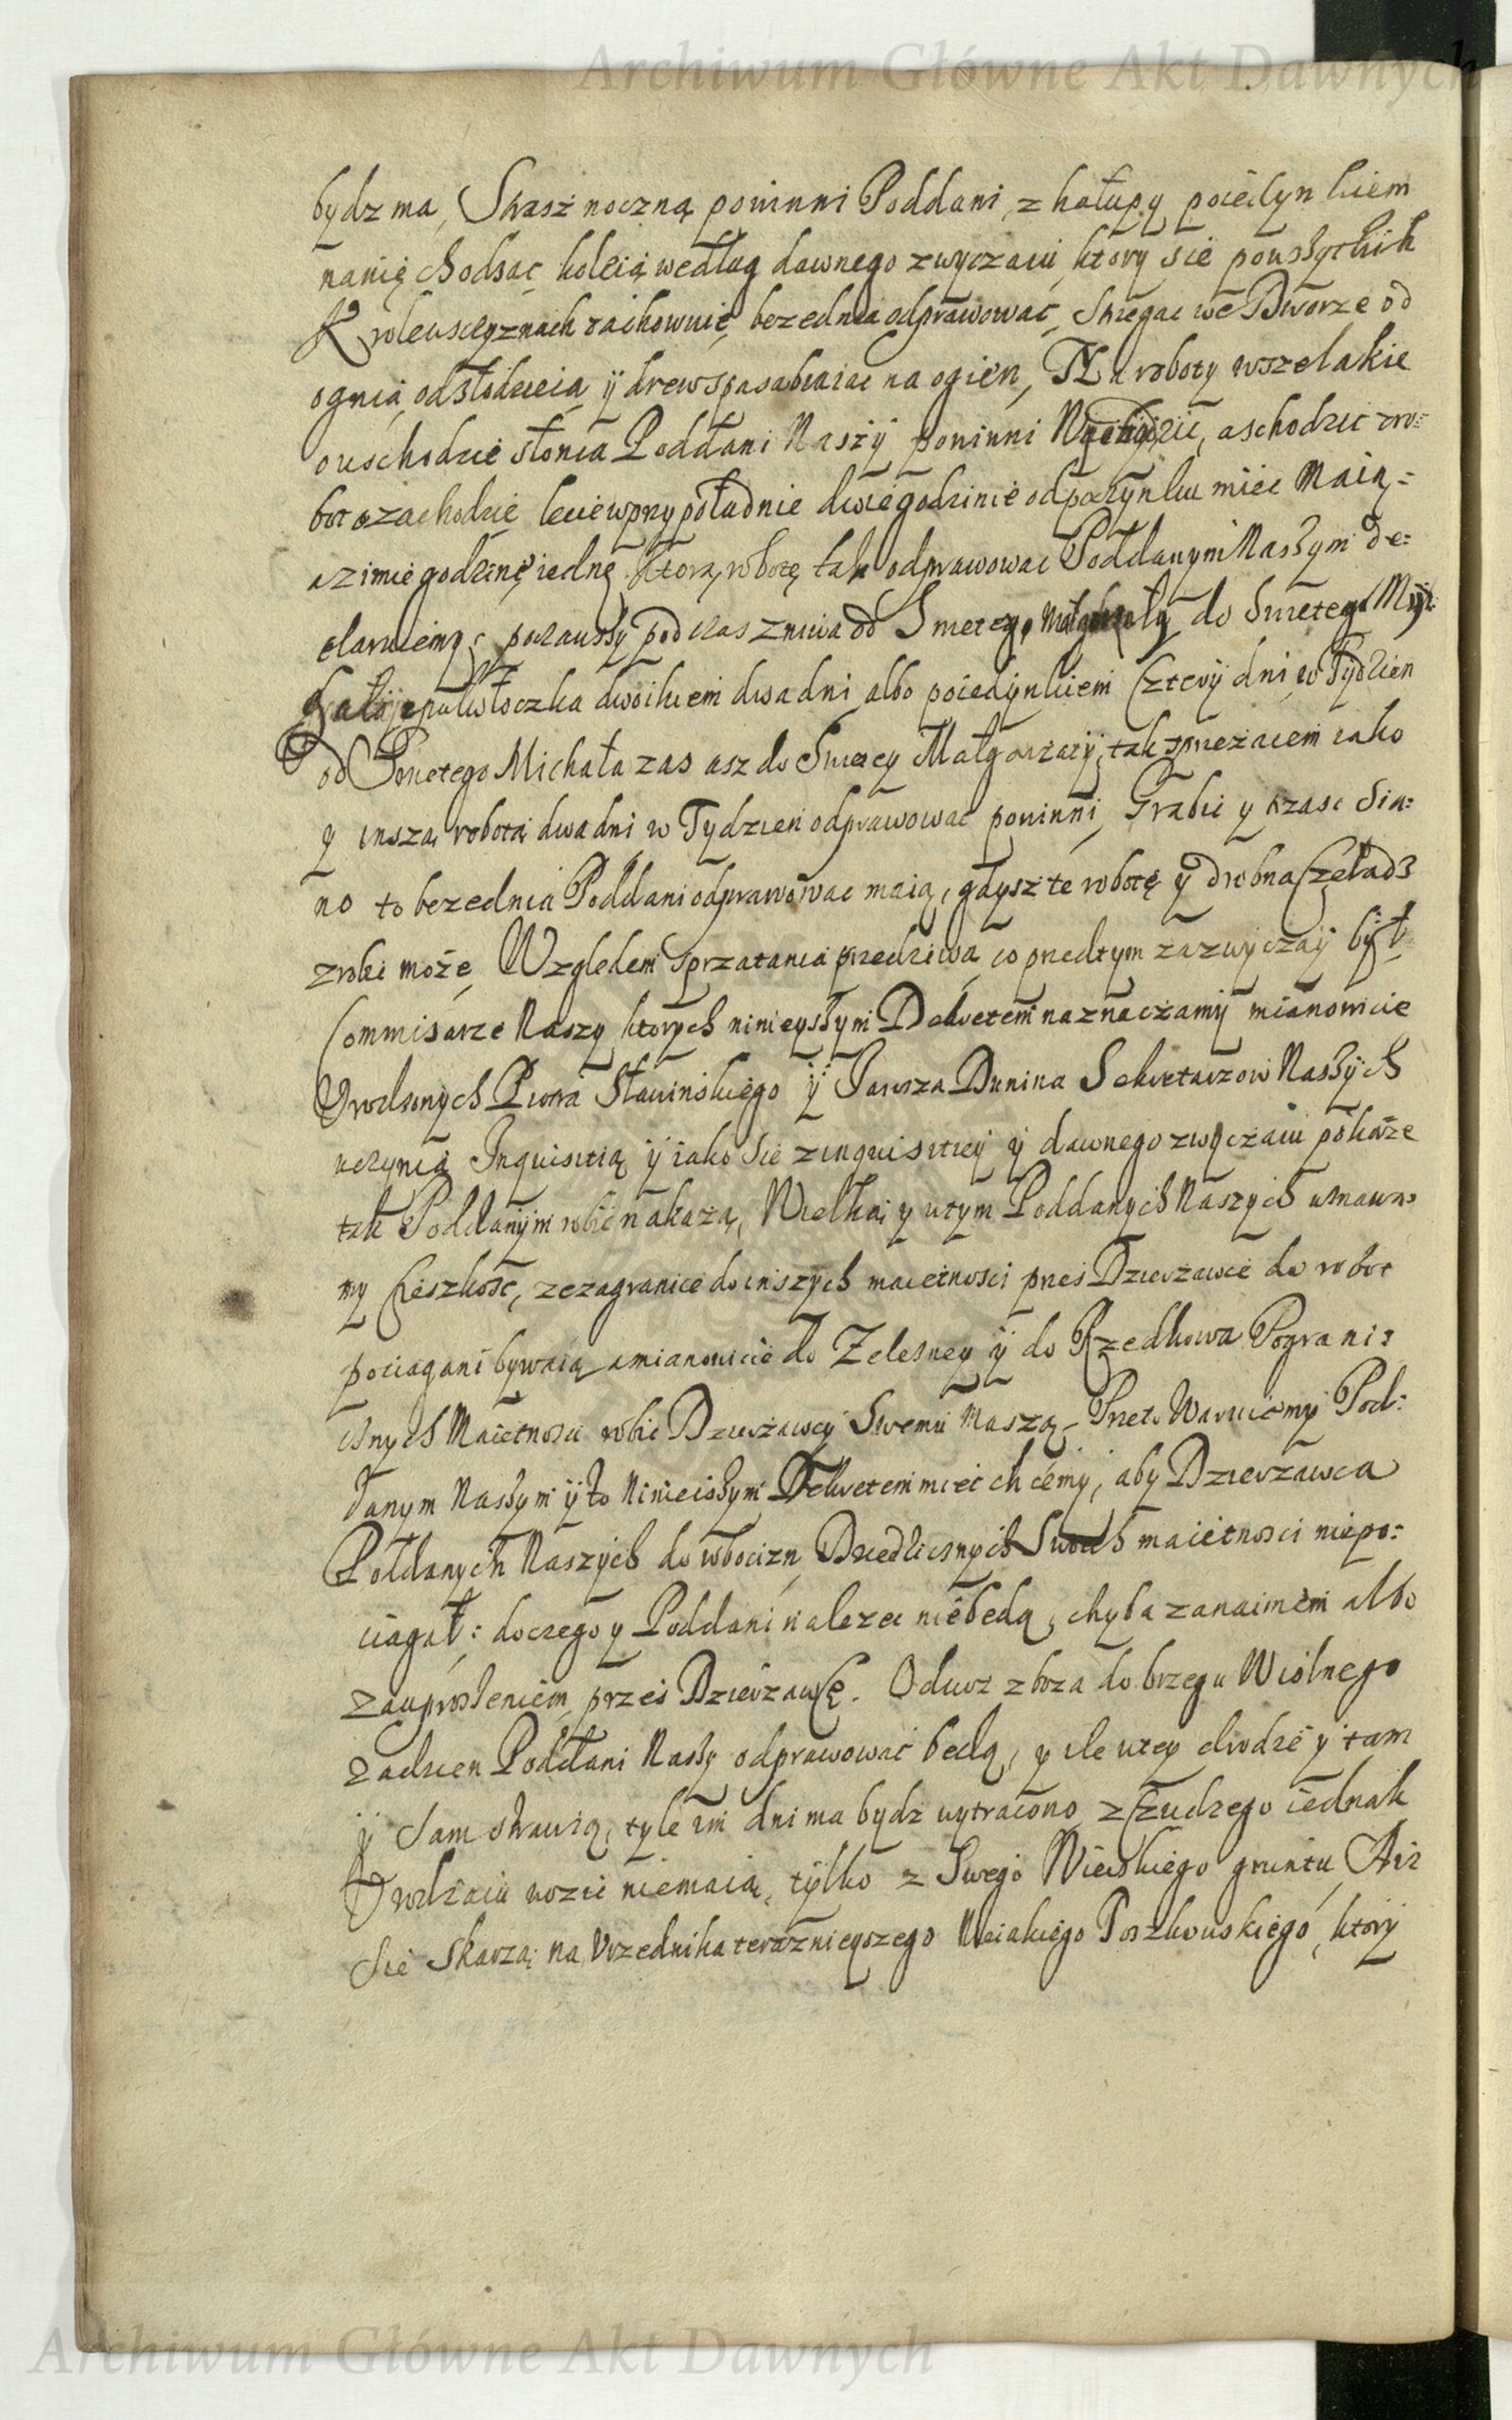 Archiwum Główne Akt Dawnych
bydz ma, Straż noczną powinni Poddani, z hałupy poiedynkiem
nanię chodząc koleią według dawnego zwyczaiu, ktory sie powszytkich
Kroleusczyznach zachowuie, bezednia odprawować, strzegac we Dworze od
ognia, odzłodzieia, ÿ drew spasabiaiac na ogień, Na roboty wszelakie
owschodzie słonca Poddani Naszÿ powinni Wychodzic, aschodzic zro=
bot ozachodzie, lecie wprzypołudnie dwie godzinie odpoczynku miec Maią=
azimie godzinę iednę. Ktorą robotę tak odprawowac Poddanym Naszym de=
claruiemy; począwszy podczas zniwa od Swietego Małgorzaty do Swietego Mÿ=
chała, zpułwłoczka dwoikiem dwa dni albo poiedynkiem Czterÿ dni w Tÿdzien
od Swietego Michała zas asz do Swietey Małgorzatÿ, tak sprzeżaiem iako
y inszą robotą dwa dni w Tydzień odprawować powinni, Grabic y trząsc Sia=
no to bezednia Poddani odprawować maią, gdysz te robotę ÿ drobna Czeladz
zrobi może, Względem sprzatania przedziwa, co przedtym zazwyczaÿ bÿł
Commisarze Naszy, ktorych ninieyszym Dekretem naznaczamÿ mianowicie
Vrodzonych Piotra Sławinskiego ÿ Janusza Dunina Sekretarzow Naszÿch
uczynią Inquisitią ÿ iako sie zinquisitiey ÿ dawnego zwyczaiu pokaże
tak Poddanÿm robić nakażą, Wielką y wtym Poddanych Naszych uznawa=
my Cieszkość, zezagranice doinszych maietnosci przes Dzierżawce do robot
pociagani bywaią, amianowicie do Zelesney ÿ do Rzedkowa Pograni=
cznych Maietnosci robic Dzierżawcÿ Swemu Muszą, Przeto Waruiemÿ Pod=
danym Naszym ÿ to Ninieiszym Dekretem mieć chcemÿ, aby Dzierzawca
Poddanych Naszych do robocizn Dziedzicznych Swoich maietnosci niepo=
ciagał; doczego y Poddani należec niebedą, chyba zanaimem albo
zauproszeniem, przes Dzierzawcę. Odwoz zboza do brzegu Wislnego
zadzien Poddani Naszy odprawować bedą, y ile wtey drodze y tam
ÿ sam strawią, tyle im dni ma bydz wytracono, z Czudzego iednak
Vrodzaiu wozić niemaią, tÿlko z Swego Wieiskiego gruntu, Aiz
Sie skarzą na Vrzednika teraznieyszego Nieiakiego Poszkowskiego, ktorÿ
Archiwum Główne Akt Dawnych